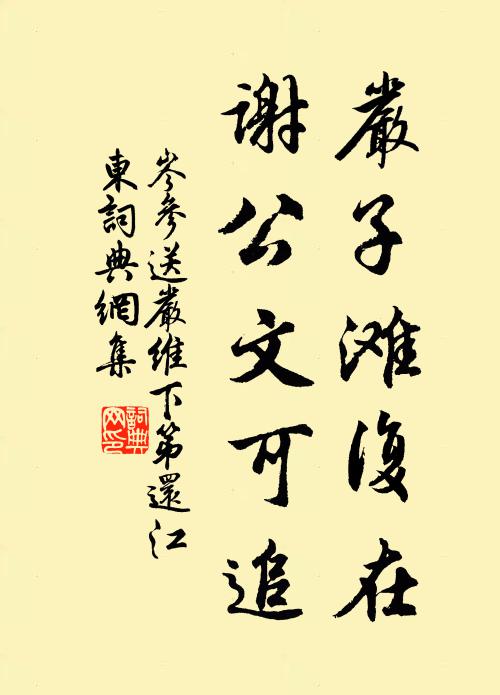 嚴子滩復在
謝公文可追
岑參送嚴維下第還江
東詞典網集
詞典网印